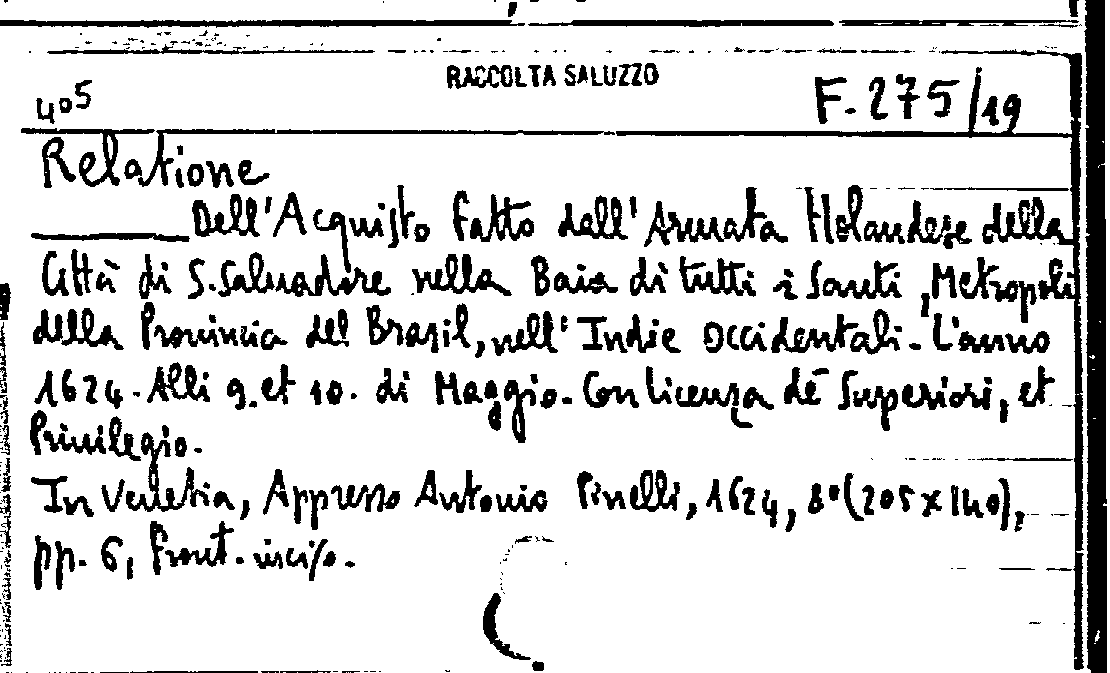 RACCOLTA SALUZZO
405
F. 275/19
Relatione
Dell'Acquisto fatto dall'Armata Holandese della
Città di S. Saluadore nella Baia di tutti i Santi, Metropoli
della Prouincia del Brasil, nell'Indie Occidentali. L'anno
1624. Alli 9. et 10. di Maggio. Con licenza dē Superiori, et
Priuilegio.
In Venetia, Appresso Antonio Pinelli, 1624, 8°(205x140),
pp. 6, front. inciso.